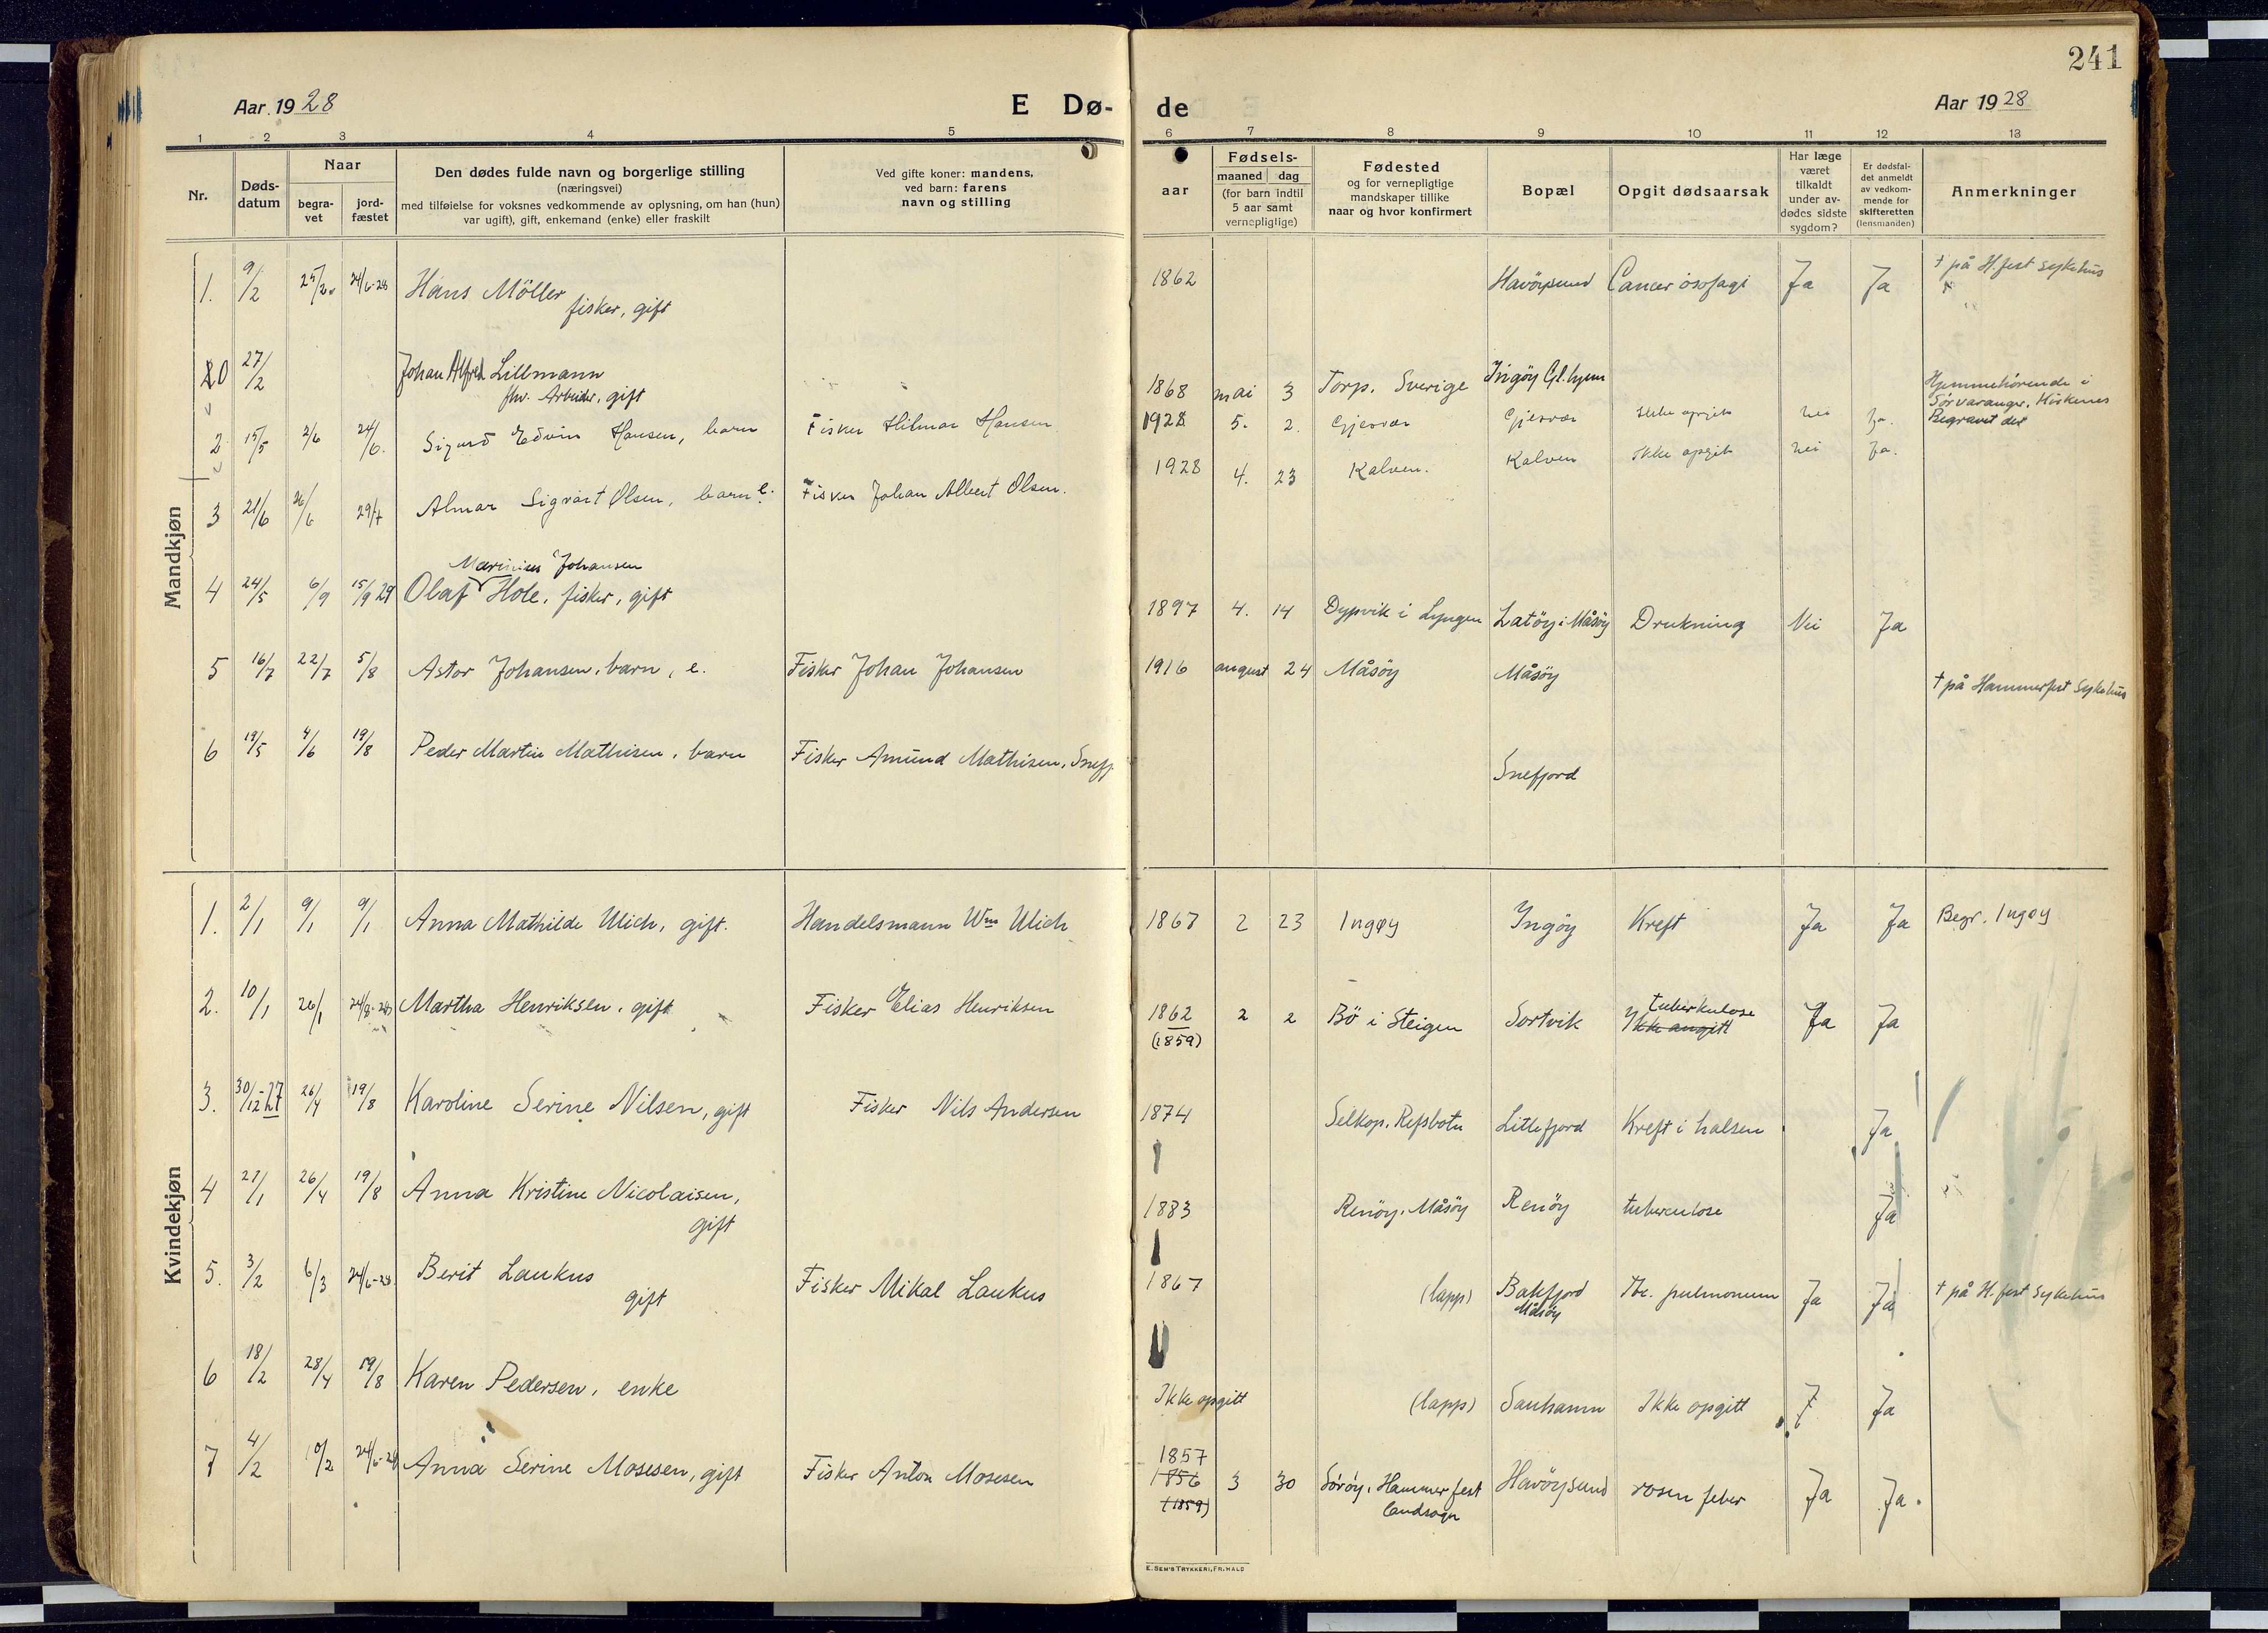 241
Aar 1928
E Dø-
de
Aar 1928
1 2 3 4 5 6 7 8 9 10 11 12 13
Nr.
Døds-
datum
Naar
begra-
vet
jord-
fæstet
Den dødes fulde navn og borgerlige stilling
(næringsvei)
med tilføielse for voksnes vedkommende av oplysning, om han (hun)
var ugift), gift, enkemand (enke) eller fraskilt
Ved gifte koner: mandens,
ved barn: farens
navn og stilling
aar
Fødsels-
maaned dag
(for barn indtil
5 aar samt
vernepligtige)
Fødested
og for vernepligtige
mandskaper tillike
naar og hvor konfirmert
Bopæl
Opgit dødsaarsak
Har læge
været
tilkaldt
under av-
dødes sidste
sygdom?
Er dødsfal-
det anmeldt
av vedkom-
mende for
skifteretten
(lensmanden)
Anmerkninger
Mandkjøn
1. 9/2 24/6-28 Hans Möller Havöysund Cancer ösofagi Ja Ja † på H.fest sykehus
fisker, gift
1862
27/2 Johan Alfred Lillmann 1868 mai 3 Torp. Sverige Ingöy Hjemmehörende i
fhv. Arbeider, gift Sörvaranger, Kirkenes
Begravet der
2 15/5 2/6 24/6. Sigurd Edvin Hansen, barn Fisker Hilmar Hansen 1928 5. 2. Gjesvær Gjesvær Ikke opgit nei Ja.
3 21/6 26/6 29/7 Almar Sigvart Olsen, barn e. Fisker Johan Albert Olsen. 1928 4. 23 Kalven. Kalven Ikke opgit nei Ja.
Marinius Johansen
4 24/5 6/9 15/9 29 Olaf Hole, fisker, gift 1897 4. 14 Dypvik i Lyngen Latöy i Måsöy Drukning Nei Ja
5 16/7 22/7 5/8 Astor Johansen, barn, e. Fisker Johan Johansen 1916 august 24 Måsöy Måsöy † på Hammerfest Sykehus
6 19/5 4/6 19/8 Peder Martin Mathisen, barn Fisker Amund Mathisen, Snefj. Snefjord
Kvindekjøn
1. 2/1 9/1 9/1 Anna Mathilde Ulich, gift. Handelsmann Wm Ulich 1867 2 23 Ingøy Ingöy Kreft Ja Ja Begr. Ingøy
2. 10/1 26/1 24/8-28 Martha Henriksen, gift Fisker Elias Henriksen 1862 2 2 Bö i Steigen Sortvik tuberkulose Ja Ja
(1859) Ikke angitt
3. 30/12-27 26/4 19/8 Karoline Serine Nilsen, gift Fisker Nils Andersen 1874 Selkop. Refsbotn Littefjord Kreft i halsen Ja
4 27/1 26/4 19/8 Anna Kristine Nicolaisen, 1883 Renöy. Måsöy Renöy tuberculose Ja
gift
5. 3/2 6/3 24/6-28 Berit Laukus Fisker Mikal Laukus 1867 (lapp) Bakfjord Tbc. pulmonum Ja Ja † på H.fest Sykehus
gift Måsöy
6 18/2 28/4 19/8 Karen Pedersen, enke Ikke opgitt (lapp) Sanhamn Ikke opgitt J Ja
7 4/2 10/2 24/6-28 Anna Serine Mosesen, gift Fisker Anton Mosesen 1857 3 30 Söröy, Hammerfest Havöysund rosen feber Ja Ja.
1856 landsogn
(1859)
E. SEM'S TRYKKERI, FR.HALD